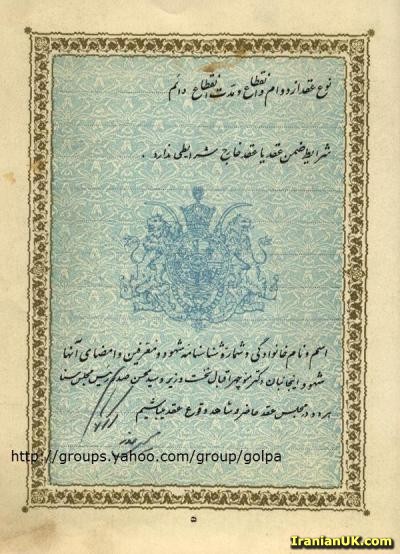 نوع عقد از دوام و انقطاع و مدت انقطاع دائم
شرایط ضمن عقد یا عقد خارج شرایطی ندارد .
اسم و نام خانوادگی و شمارهٔ شناسنامه شهود و معرفین و امضای آنها
شهود اینجانبان دکتر منوچهر اقبال نخست وزیر و سید محسن صدر رئیس مجلس سنا
هر دو در مجلس عقد حاضر و شاهد وقوع عقد میباشیم
http://groups.yahoo.com/group/golpa
۵
IranianUK.com